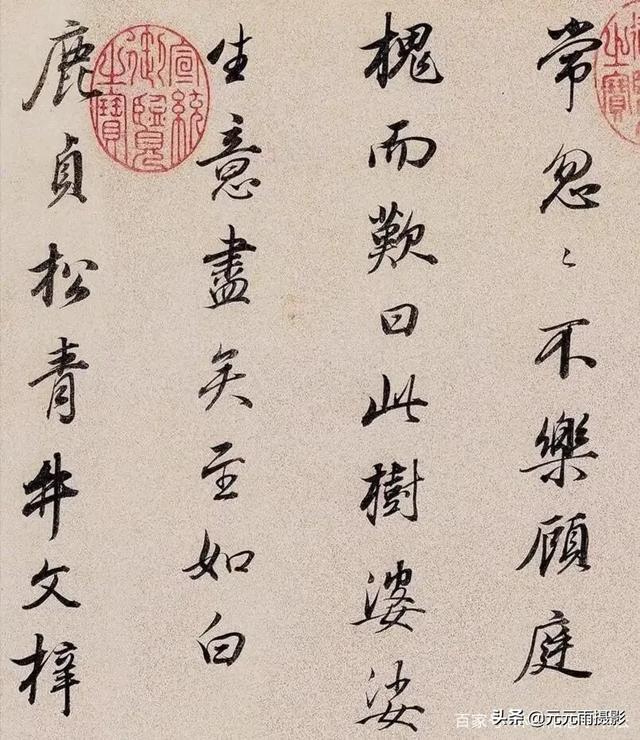 常忽〻不樂顧庭
槐而歎曰此樹婆娑
生意盡矣至如白
鹿貞松青牛文梓
宣統御覽之寶
头条 @元元雨摄影
百家